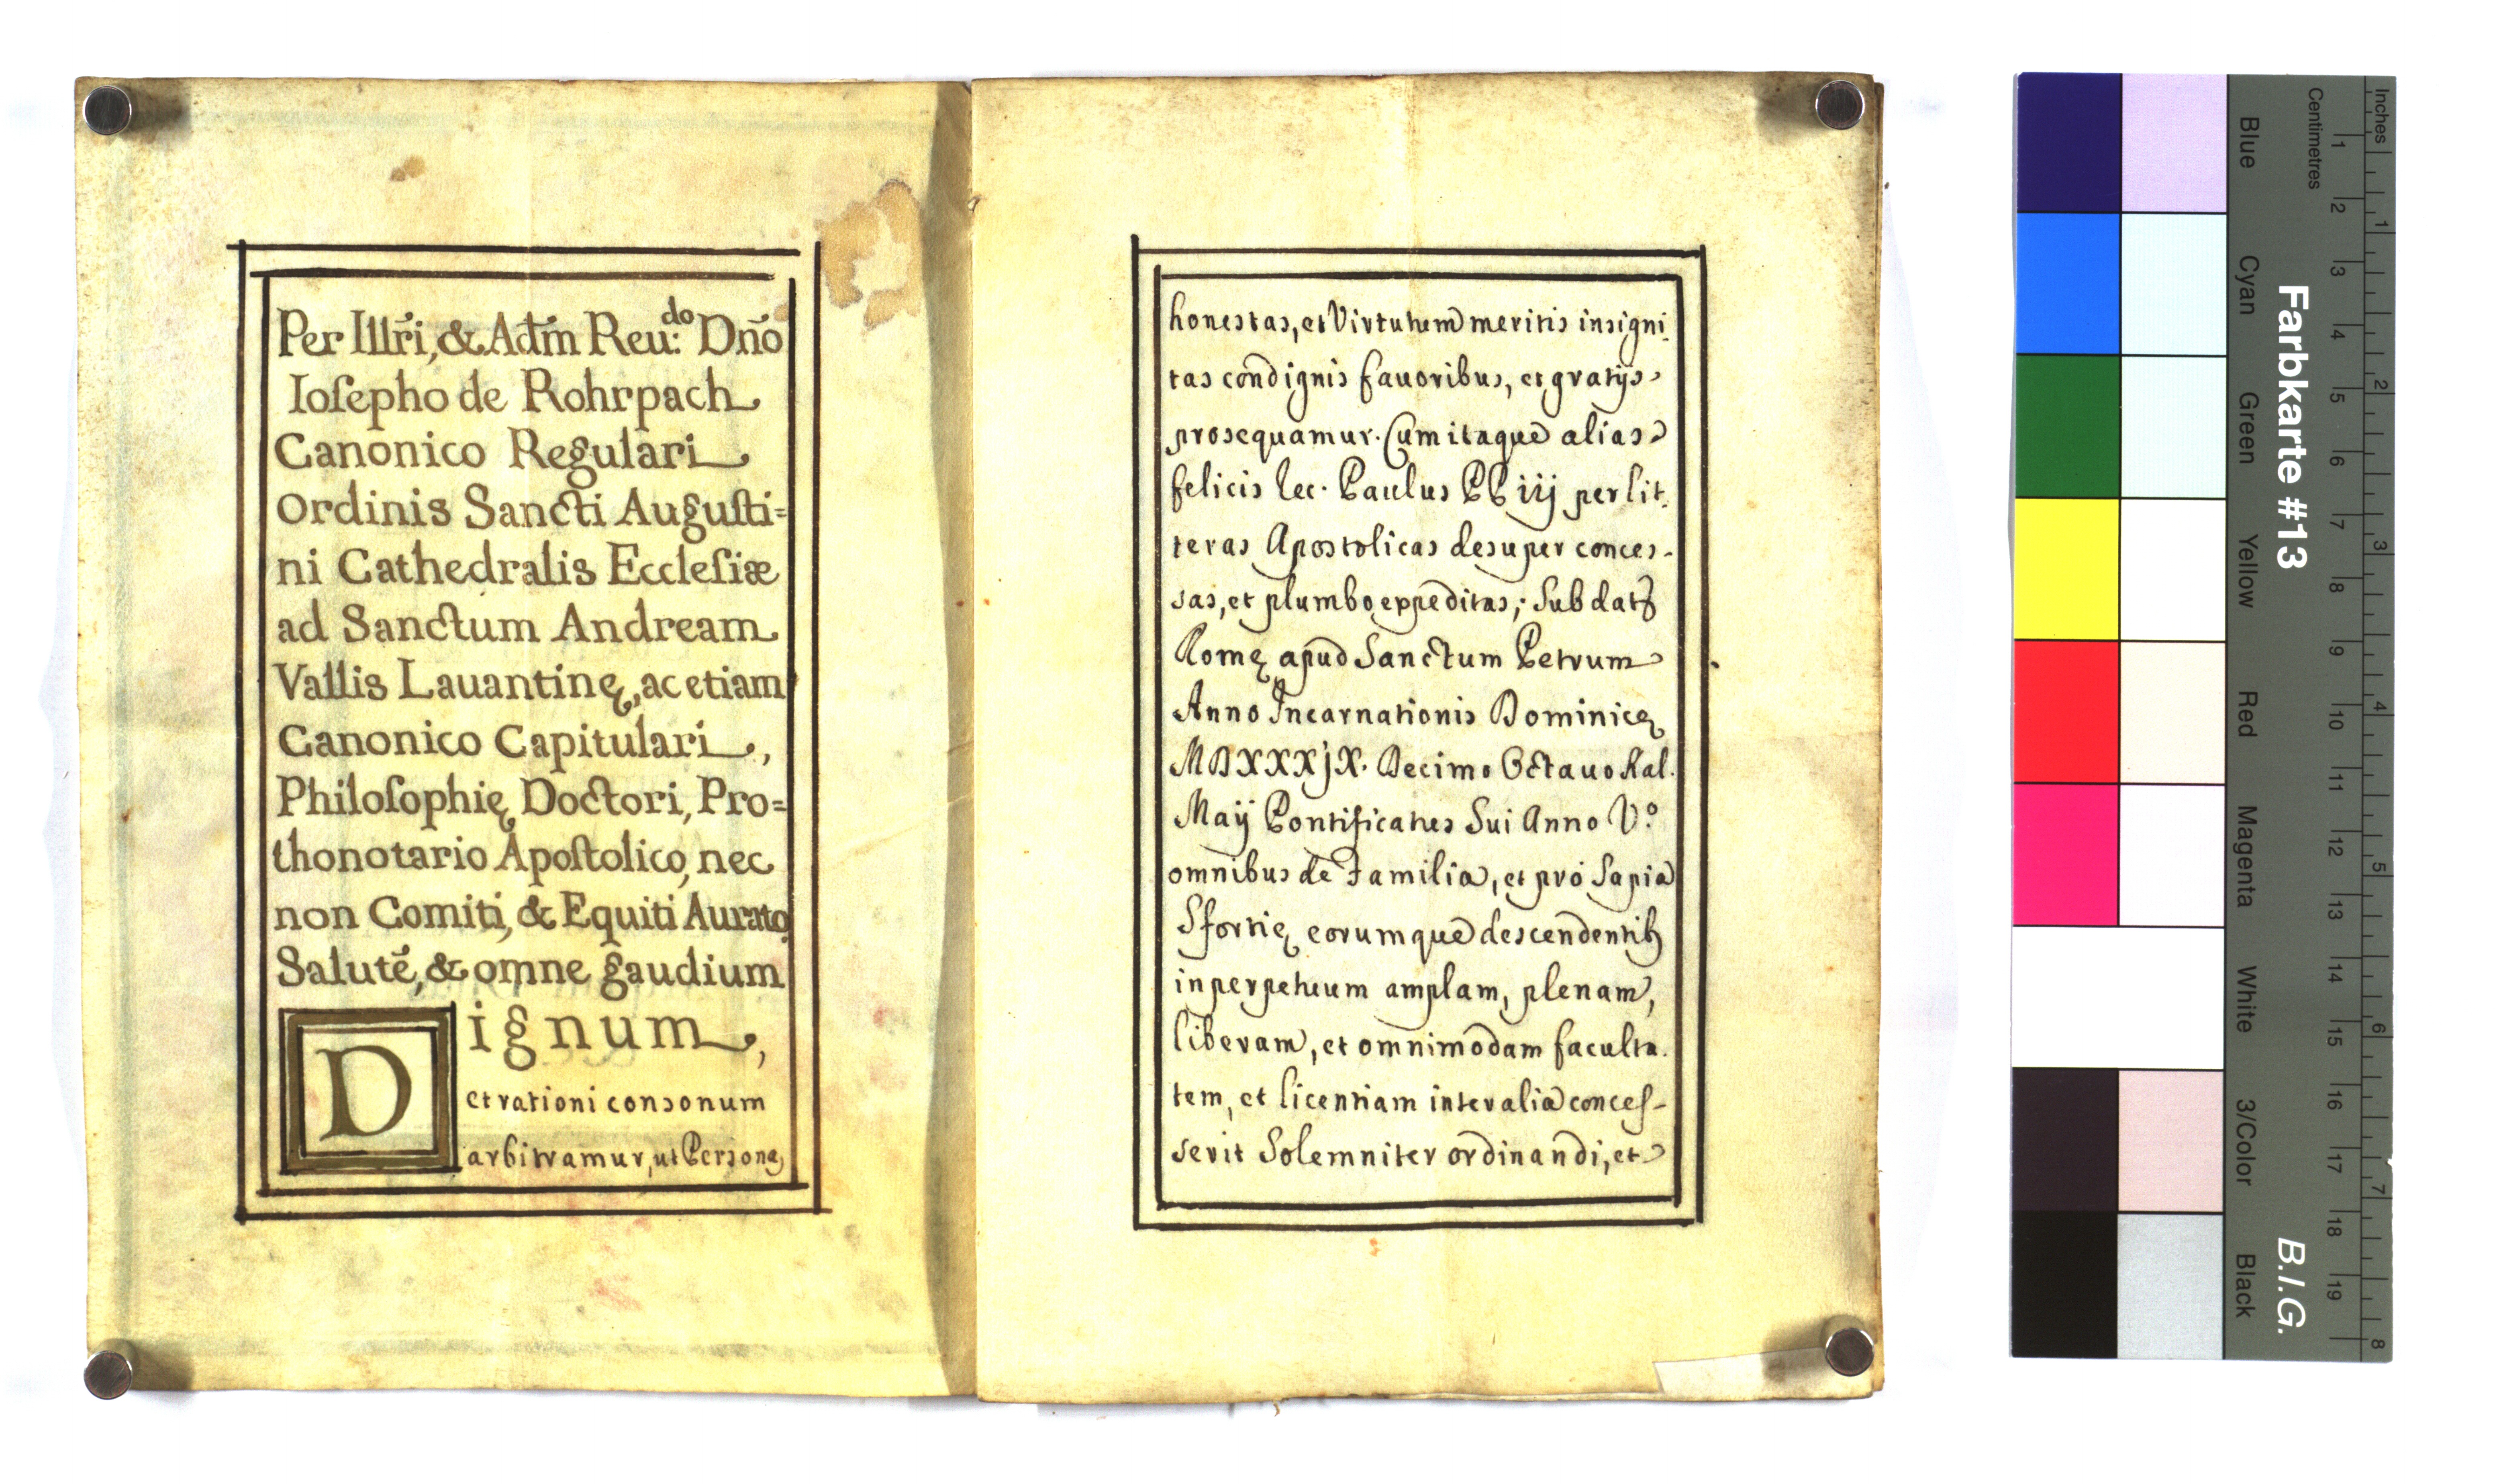 Per Illr̃i, & Adm̃ Reu:do Dño
Ioſepho de Rohrpach
Canonico Regulari
Ordinis Sancti Auguſti=
ni Cathedralis Eccleſiæ
ad Sanctum Andream
Vallis Lauantinę, ac etiam
Canonico Capitulari,
Philoſophię Doctori, Pro=
thonotario Apoſtolico, nec
non Comiti, & Equiti Aurato
Salutẽ, & omne gaudium
Dignum,
et rationi consonum
arbitramur, ut Personę
honestas, et Virtutum meritis insigni.
tas condignis fauoribus, et gratijs
prosequamur. Cum itaque alias
felicis rec. Paulus PP iij per lit.
teras Apostolicas desuper conces-
sas, et plumbo expeditas, Sub datũ
Romę apud Sanctum Petrum
Anno Incarnationis Dominicę
MDXXXjX. Decimo Octauo Kal.
Maij Pontificatus Sui Anno V.o
omnibus de Familia, et pro Sapia
Sfortię eorumque descendentib9
in perpetuum amplam, plenam,
liberam, et omnimodam faculta.
tem, et licentiam inter alia conceſ-
serit Solemniter ordinandi, et
Farbkarte #13
B.I.G.
Inches
1 2 3 4 5 6 7 8
Centimetres
1 2 3 4 5 6 7 8 9 10 11 12 13 14 15 16 17 18 19
Blue
Cyan
Green
Yellow
Red
Magenta
White
3/Color
Black